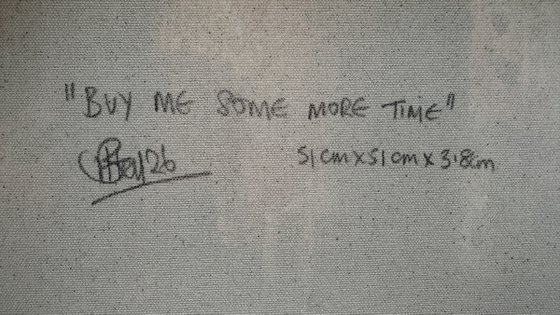 "BUY ME SOME MORE TIME"
26 51cmx51cmx3.8cm